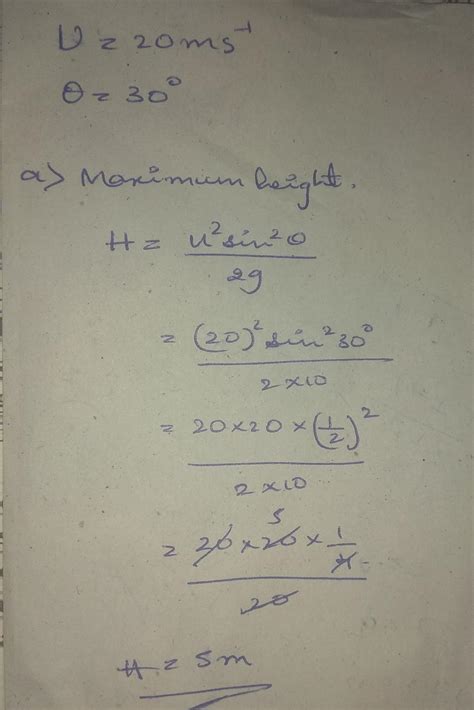 U = 20ms⁻¹
θ = 30°
a) Maximum height.
H = u² sin² θ
2g
= (20)² sin² 30°
2×10
= 20×20×(1/2)²
2×10
5
= 20×20×1/4
20
H = 5m